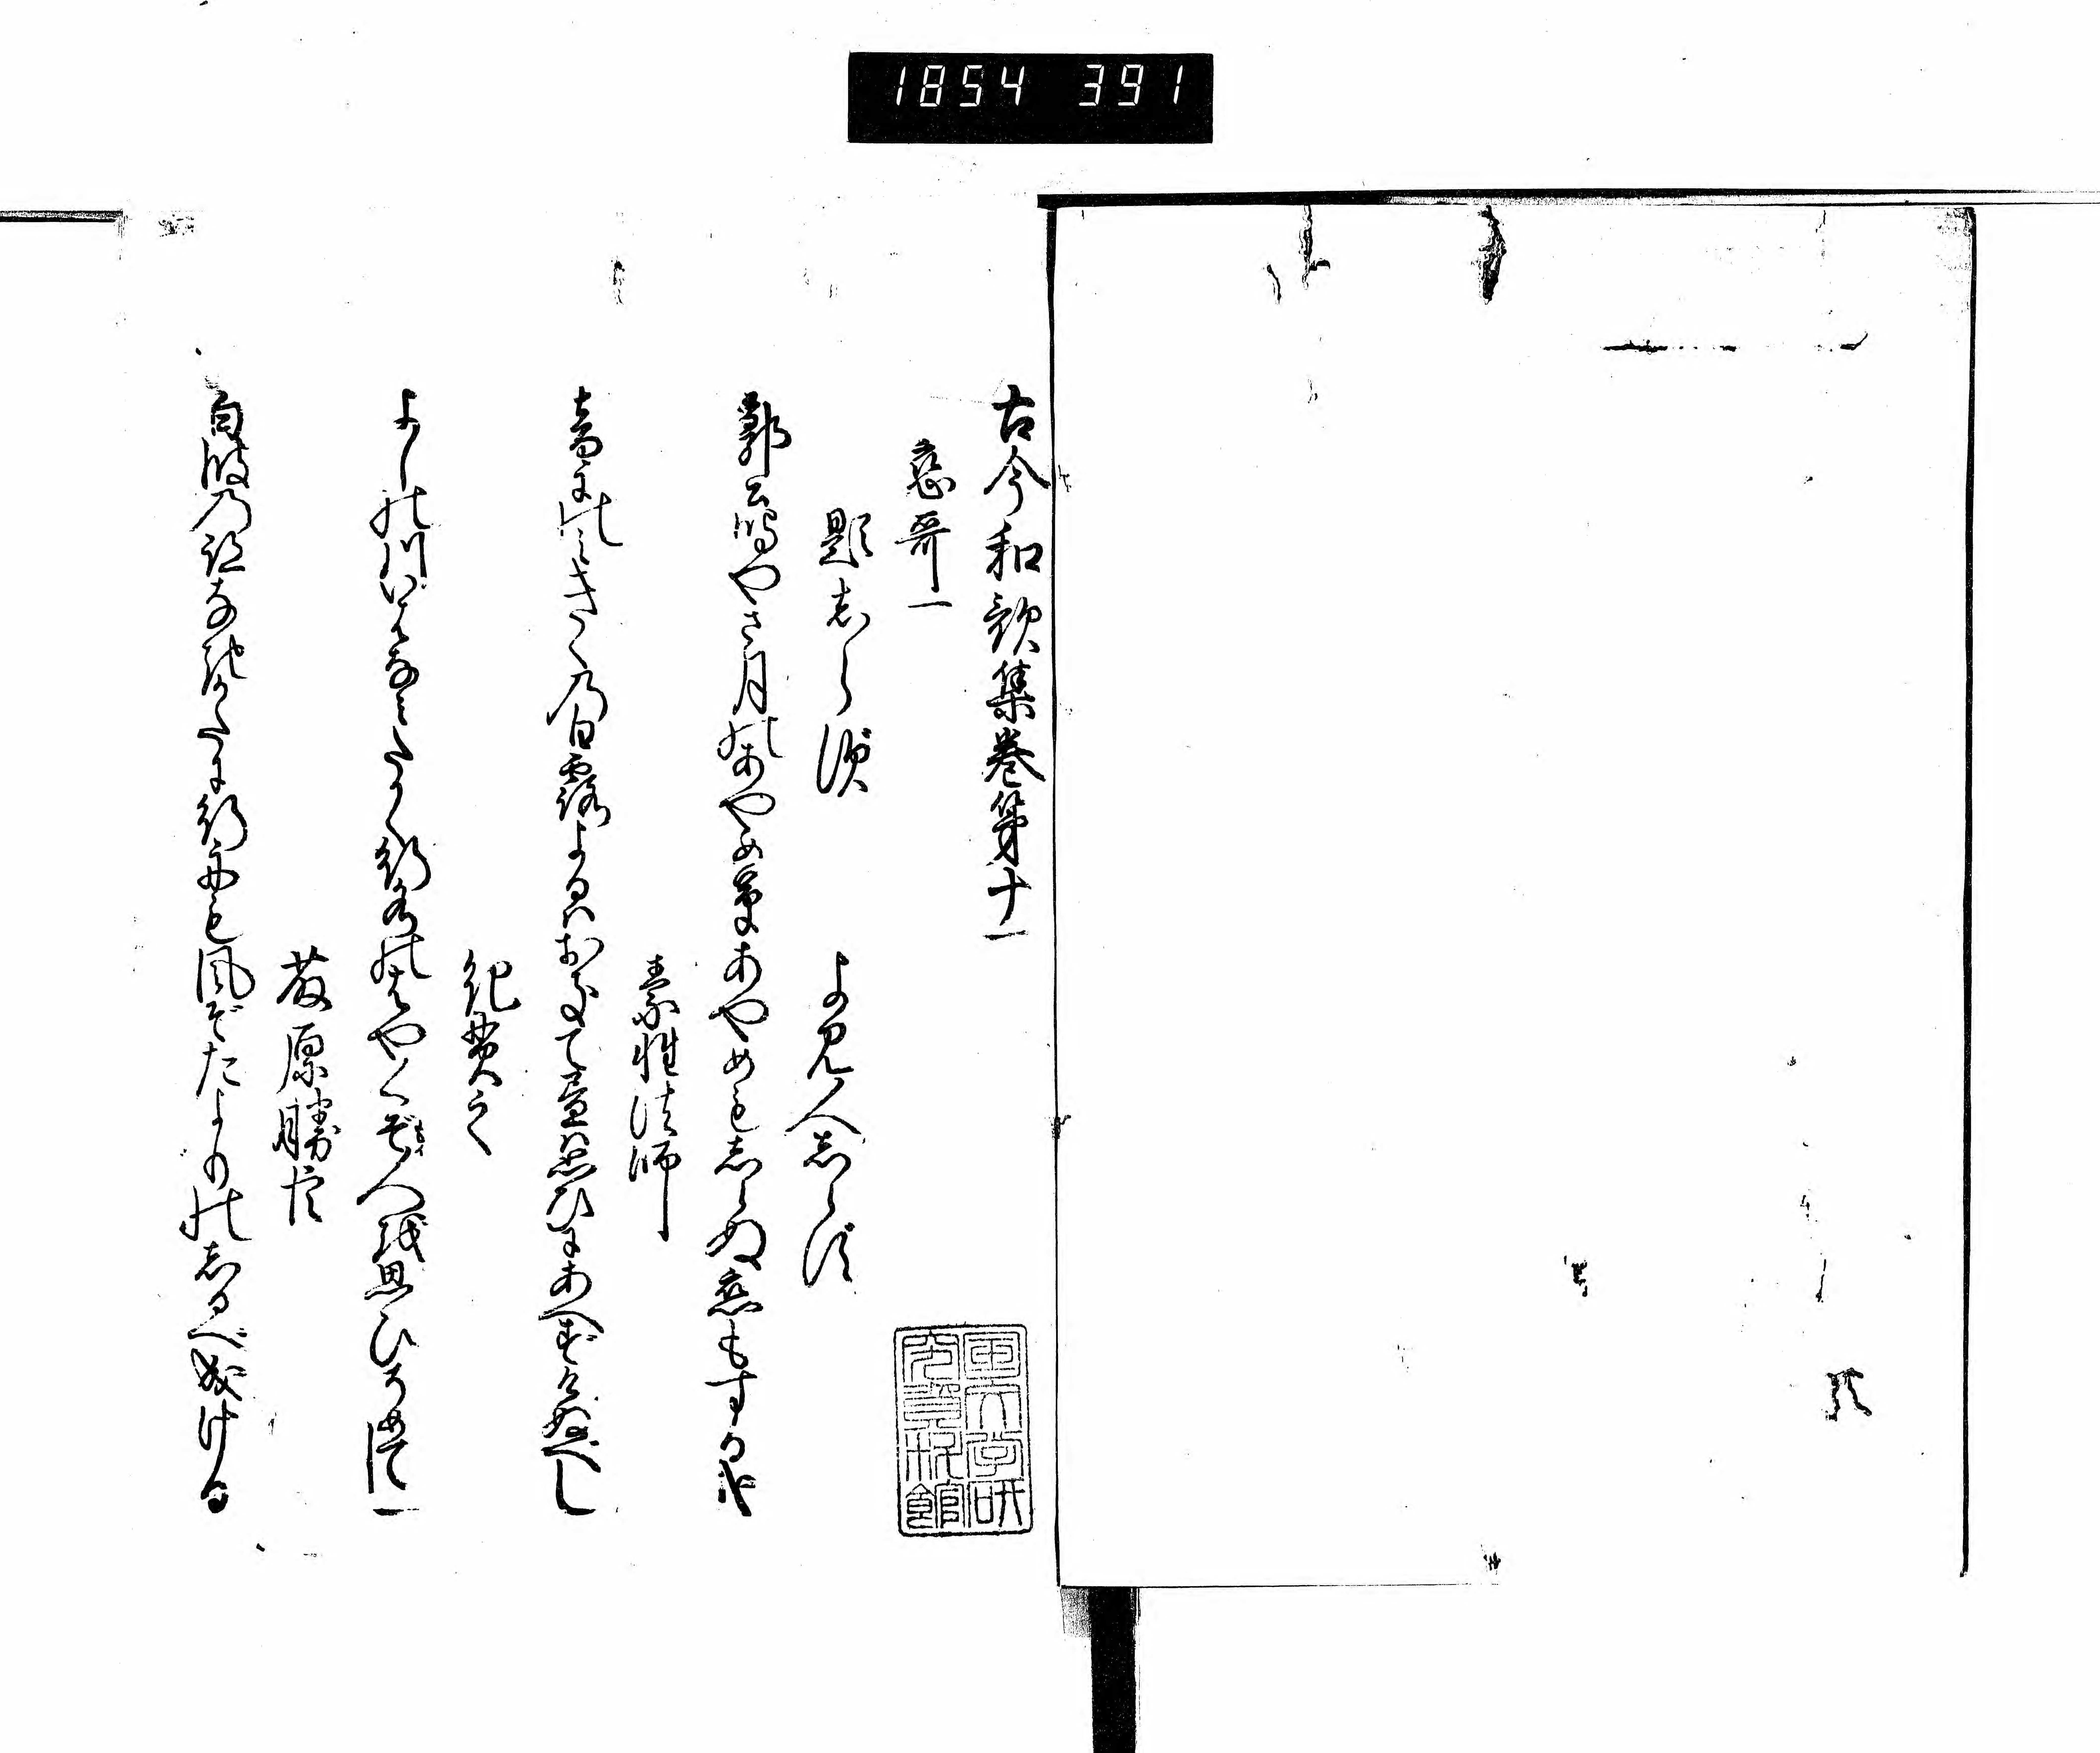 1854 391
古今和歌集巻第十一
恋哥一
題志らず
よみ人志らず
郭公鳴やさ月のあやめ草あやめも志らぬ恋もする哉
素性法師
音にのミきくの白露よるハおきて昼ハ思ひにあへずけぬべし
紀貫之
よしの川いはなミたかく行水のはやくぞ人を思ひそめてし
藤原勝臣
白波のあとなきかたに行舟も風ぞたよりの志るべ成ける
国文学研究資料館